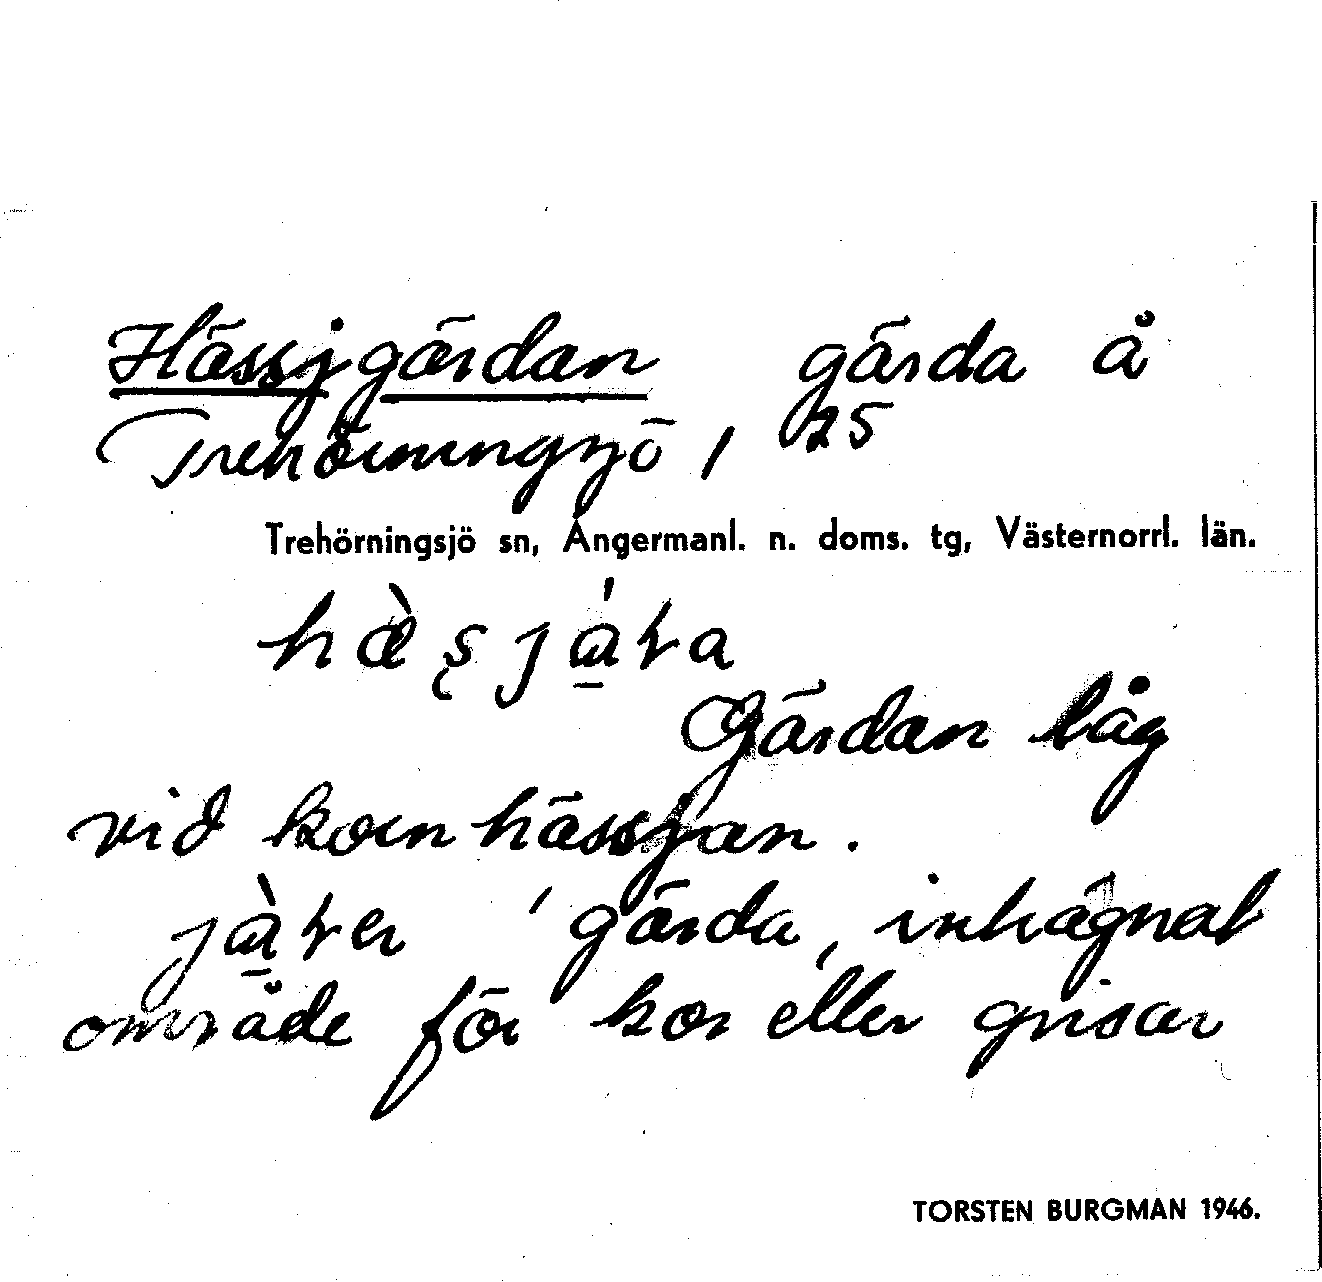 Hässjgärdan gärda å
Trehörningsjö, 1 75
Trehörningsjö sn, Ångermanl. n. doms. tg, Västernorrl. län.
Gärdan låg
vid kornhässjan.
'gärda, inhägnat
område för kor eller grisar
TORSTEN BURGMAN 1946.